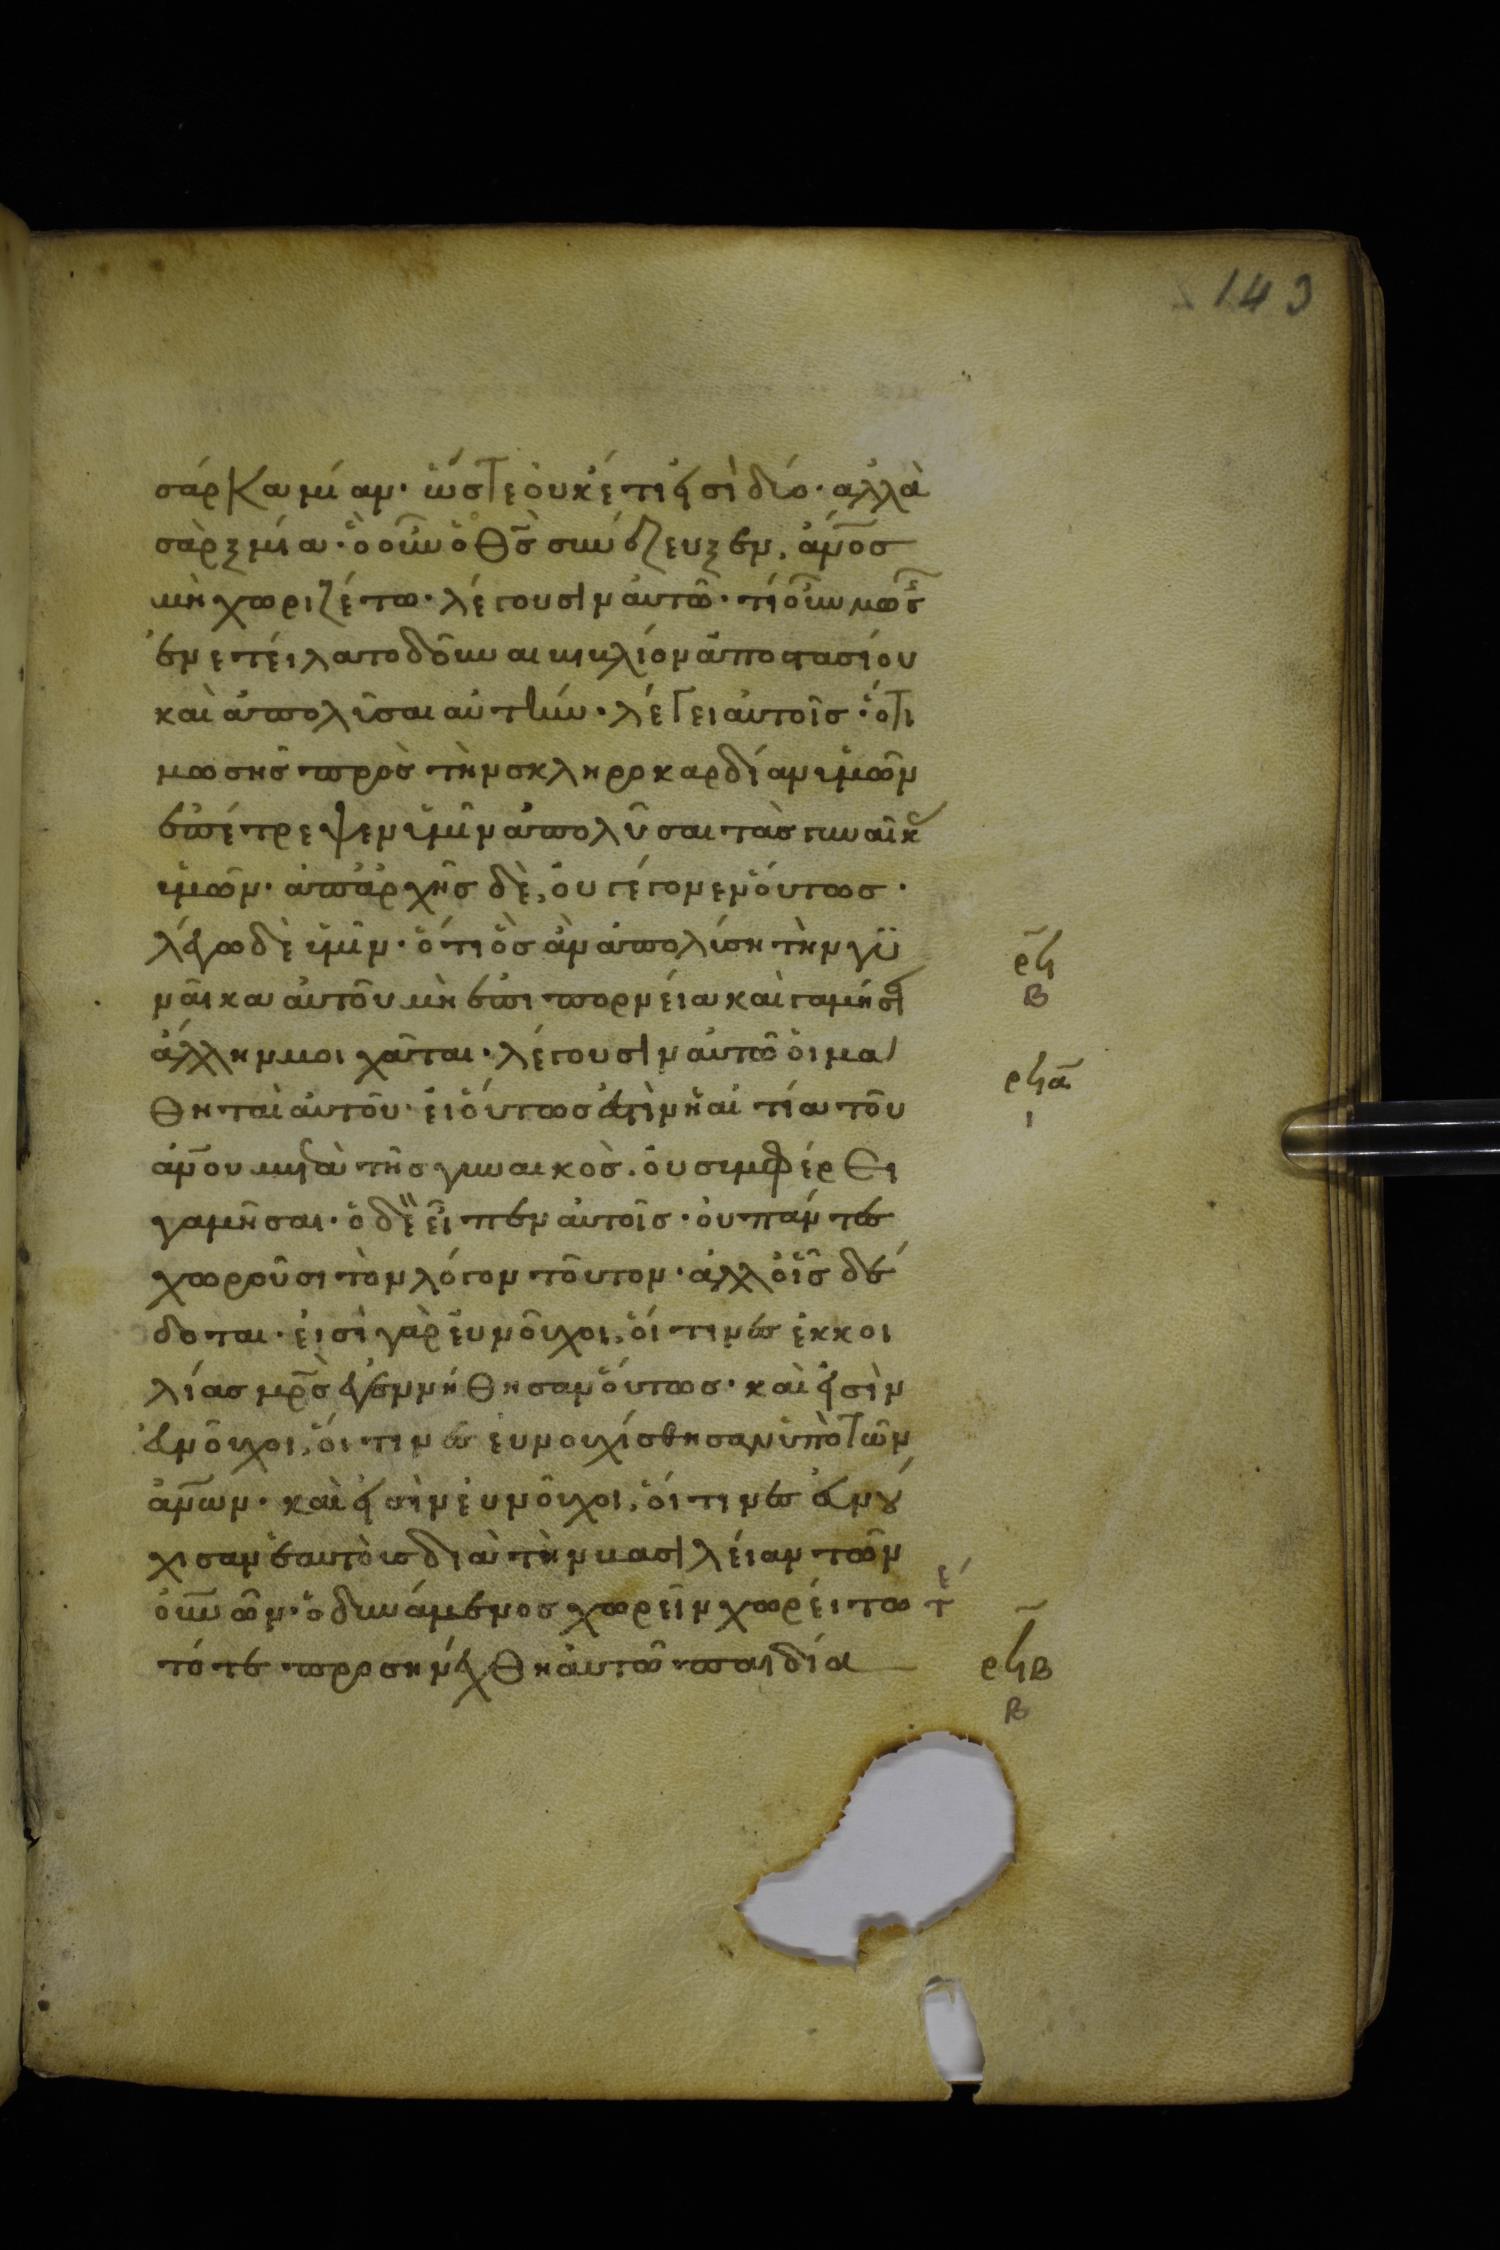 143
σάρκα μίαν· ὥστε ὀυκέτι εἰσὶ δύο· ἀλλὰ
σὰρξ μία· ὃ οὖν ὁ θ̅ς̅ συνέζευξεν, ἄν̅ο̅σ
μὴ χωριζέτω· λέγουσιν ἀυτῶ· τί οὖν μωσῆς
ἐνετείλατο δοῦναι βιβλίον ἀποστασίου
καὶ ἀπολῦσαι αὐτήν· λέγει αὐτοῖς· ὅτι
μωσῆς πρὸς τὴν σκληροκαρδίαν ὑμῶν
ἐπέτρεψεν ὑμῖν ἀπολῦσαι τὰς γυναῖκ
ὑμῶν· ἀπἀρχῆς δὲ, ὀυ γέγονεν ὅυτως·
λέγω δὲ ὑμῖν· ὅτι ὃς ἂν ἀπολύση τὴν γυ
ναῖκα ἀυτοῦ μὴ ἐπὶ πορνεία καὶ γαμήση
ἄλλην μοιχᾶται· λέγουσιν ἀυτῶ ὁι μα
θηταὶ ἀυτοῦ· ἐι ὅυτως ἐστὶν ἡ αἰτία τοῦ
ἀν̅ου μετὰ τῆς γυναικὸς· ὀυ συμφέρει
γαμῆσαι· ὁ δὲ εἶπεν ἀυτοῖς· ὀυ πάντες
χωροῦσι τὸν λόγον τοῦτον· ἀλλ ὁἷς δέ
δοται· ἐισὶ γὰρ ἐυνοῦχοι, ὅιτινες ἐκ κοι
λίας μρ̅ς ἐγεννήθησαν ὅυτως· καὶ εἰσὶν
ἐυνοῦχοι, ὅιτινες ἐυνουχίσθησαν ὑπὸ τῶν
ἀν̅ων· καὶ εἰσὶν ἐυνοῦχοι, ὅιτινες ἐυνού
χισαν ἑαυτοὺς διὰ τὴν βασιλείαν τῶν
ὀυ̅νῶν· ὁ δυνάμενος χωρεῖν χωρείτω τέ
τότε προσηνέχθη ἀυτῶ παιδία
ρϟ
β
ρϟα
ι
ρϟβ
β